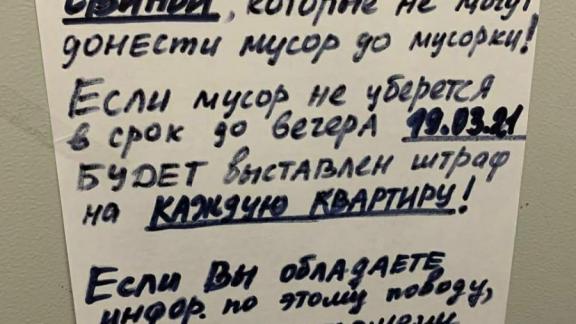 СВИНЕЙ, которые не могут
донести мусор до мусорки!
Если мусор не уберется
в срок до вечера 19.03.21
БУДЕТ выставлен штраф
на КАЖДУЮ КВАРТИРУ!
Если Вы обладаете
инфор. по этому поводу,